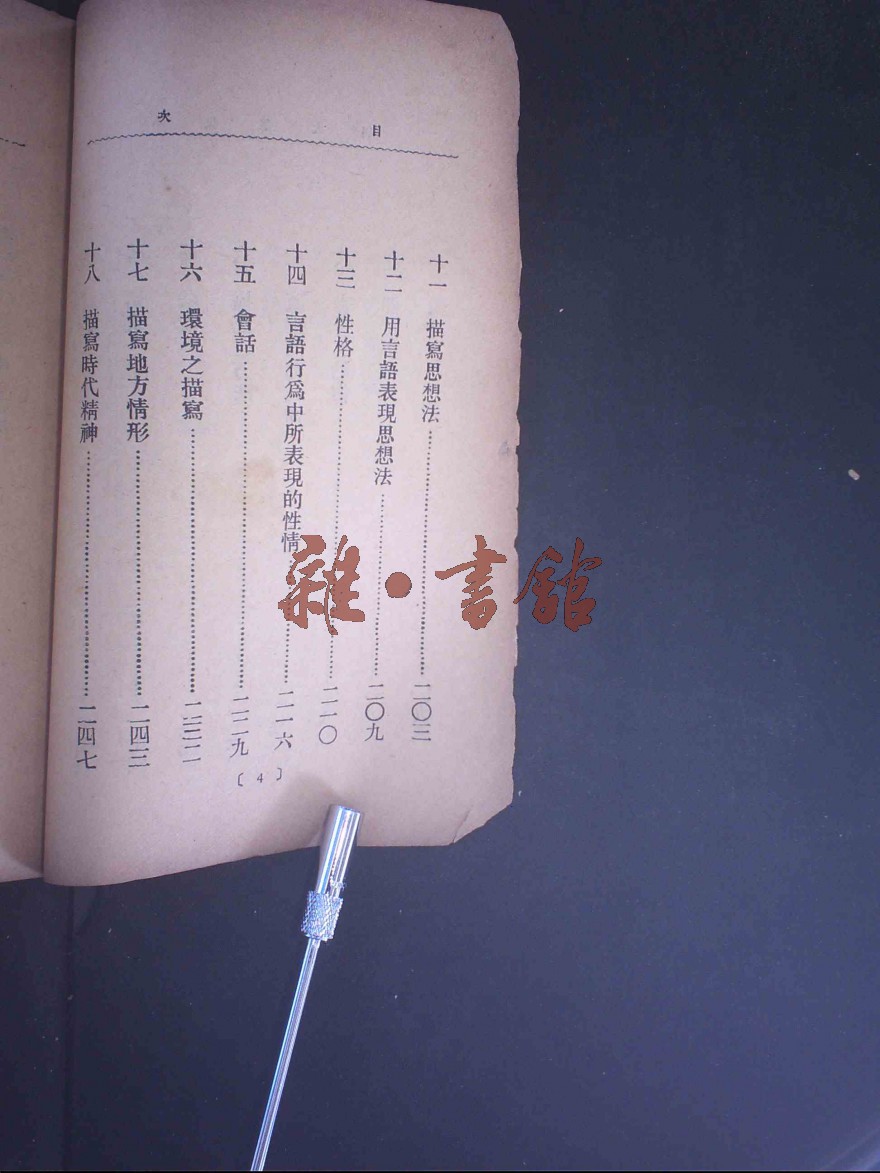 目次
十一 描寫思想法…………二〇三
十二 用言語表現思想法…………二〇九
十三 性格…………二一〇
十四 言語行爲中所表現的性情…………二一六
十五 會話…………二二九
十六 環境之描寫…………二三二
十七 描寫地方情形…………二四三
十八 描寫時代精神…………二四七
〔4〕
雜·書館